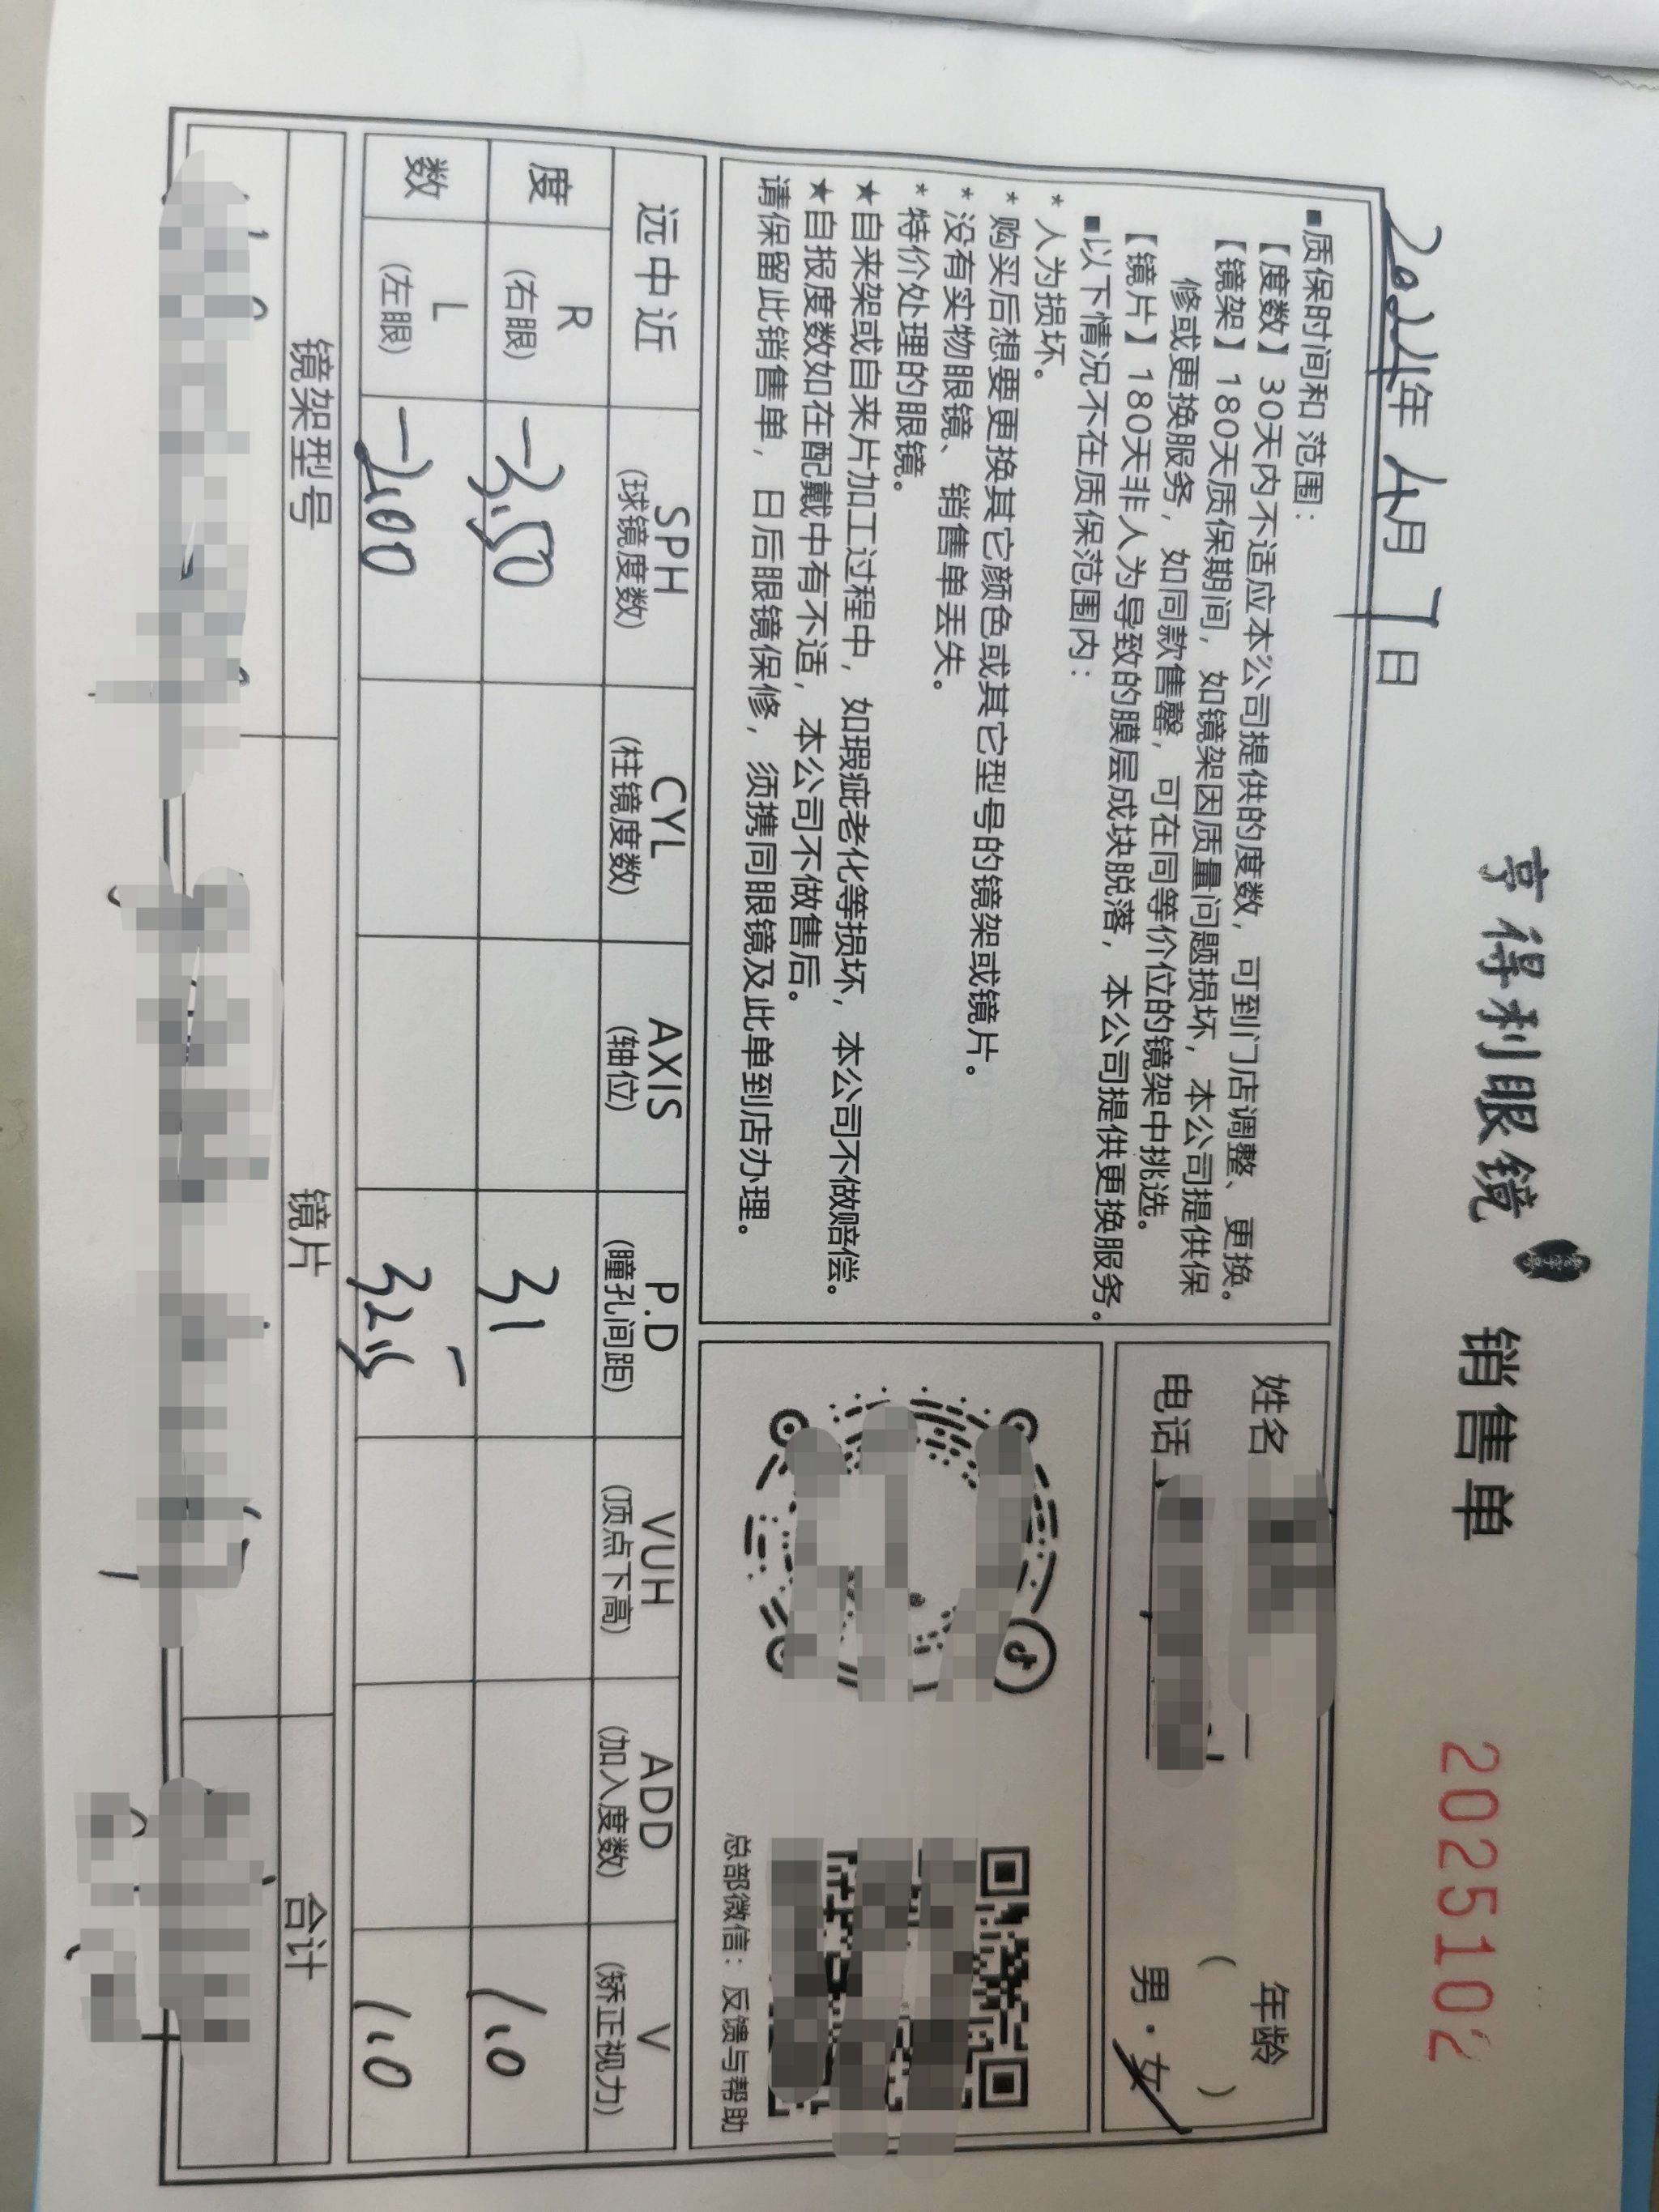 亨得利眼镜 销售单 2025102
2021年4月7日
■质保时间和 范围：
【度数】30天内不适应本公司提供的度数，可到门店调整、更换。
【镜架】180天质保期间，如镜架因质量问题损坏，本公司提供保
修或更换服务，如同款售罄，可在同等价位的镜架中挑选。
【镜片】180天非人为导致的膜层成块脱落，本公司提供更换服务。
■以下情况不在质保范围内：
* 人为损坏。
* 购买后想要更换其它颜色或其它型号的镜架或镜片。
* 没有实物眼镜、销售单丢失。
* 特价处理的眼镜。
★自来架或自来片加工过程中，如瑕疵老化等损坏，本公司不做赔偿。
★自报度数如在配戴中有不适，本公司不做售后。
请保留此销售单，日后眼镜保修，须携同眼镜及此单到店办理。
姓名 年龄
电话 ( )
男·女
总部微信：反馈与帮助
远中近 SPH CYL AXIS P.D VUH ADD V
(球镜度数) (柱镜度数) (轴位) (瞳孔间距) (顶点下高) (加入度数) (矫正视力)
度 R (右眼) 31 1.0
数 L (左眼) 32.5 1.0
镜架型号 镜片 合计